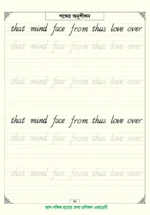 শব্দের অনুশীলন
that mind face from thus love over
that mind face from thus love over
that mind face from thus love over
that mind face from thus love over